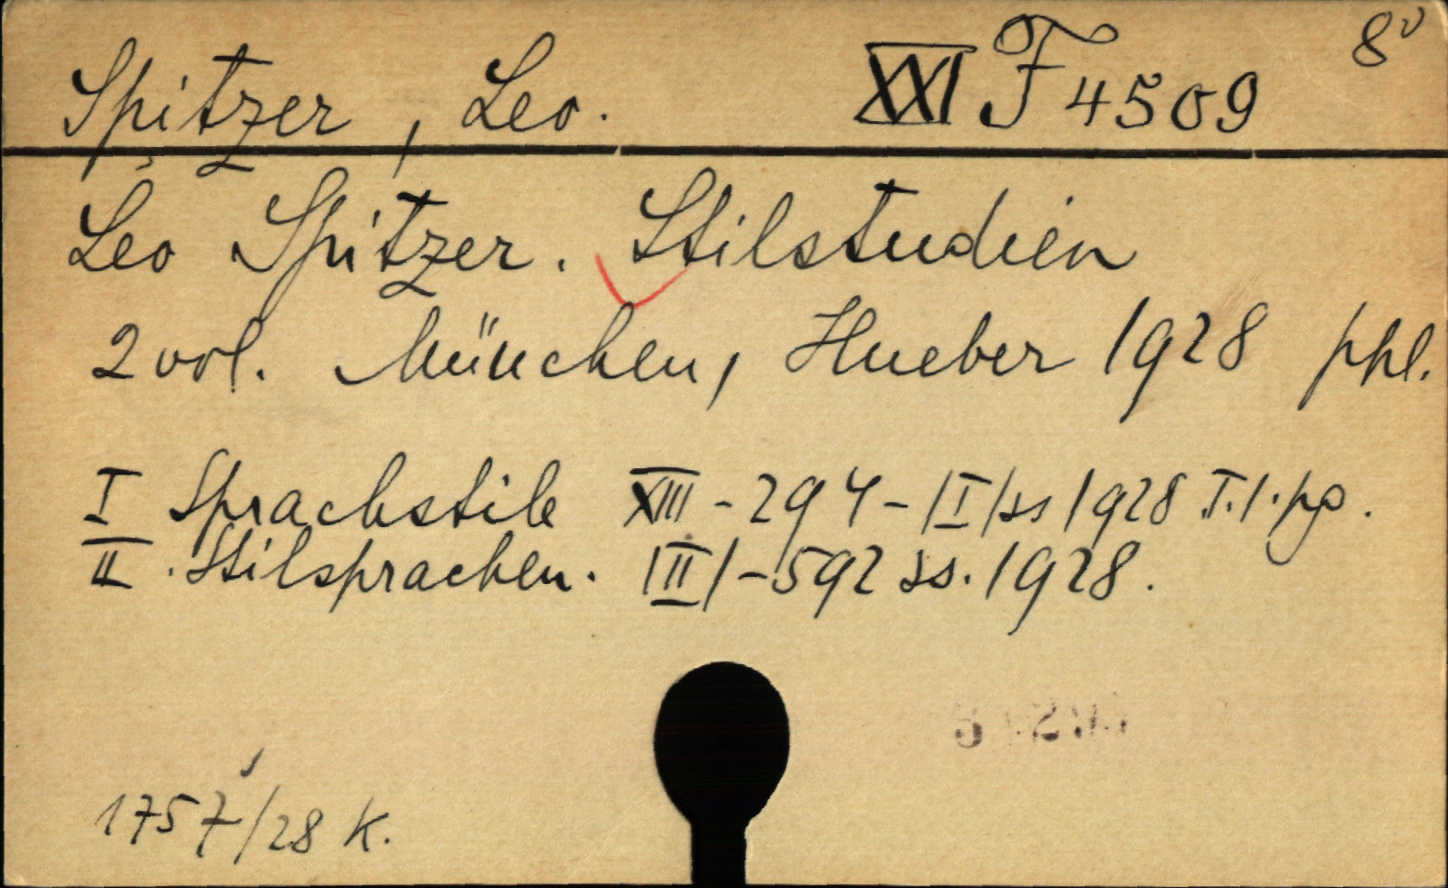 Spitzer, Leo. XXI F 4509 8°
Leo Spitzer. Stilstudien
2 vol. München, Hueber 1928 phl.
I Sprachstile XIII - 294 - /I/ ss 1928 T.1. pg.
II. Stilsprachen. /II/ - 592 ss. 1928.
1757/28 K.